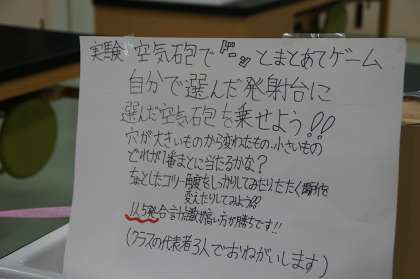 実験 空気砲で ドーン とまとあてゲーム
自分で選んだ発射台に
選んだ空気砲を乗せよう!!
穴が大きいものから変わったもの、小さいもの
どれが1番まとに当たるかな?
角度をしっかりしてみたり、たたく場所を
変えたりしてみよう??
1人5発 合計点数が高い方が勝ちです!!
(クラスの代表者3人でおねがいします)